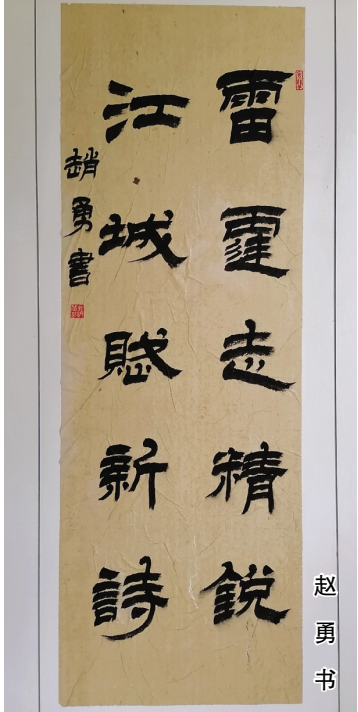 雷霆走精銳
江城賦新詩
趙勇書
赵勇书